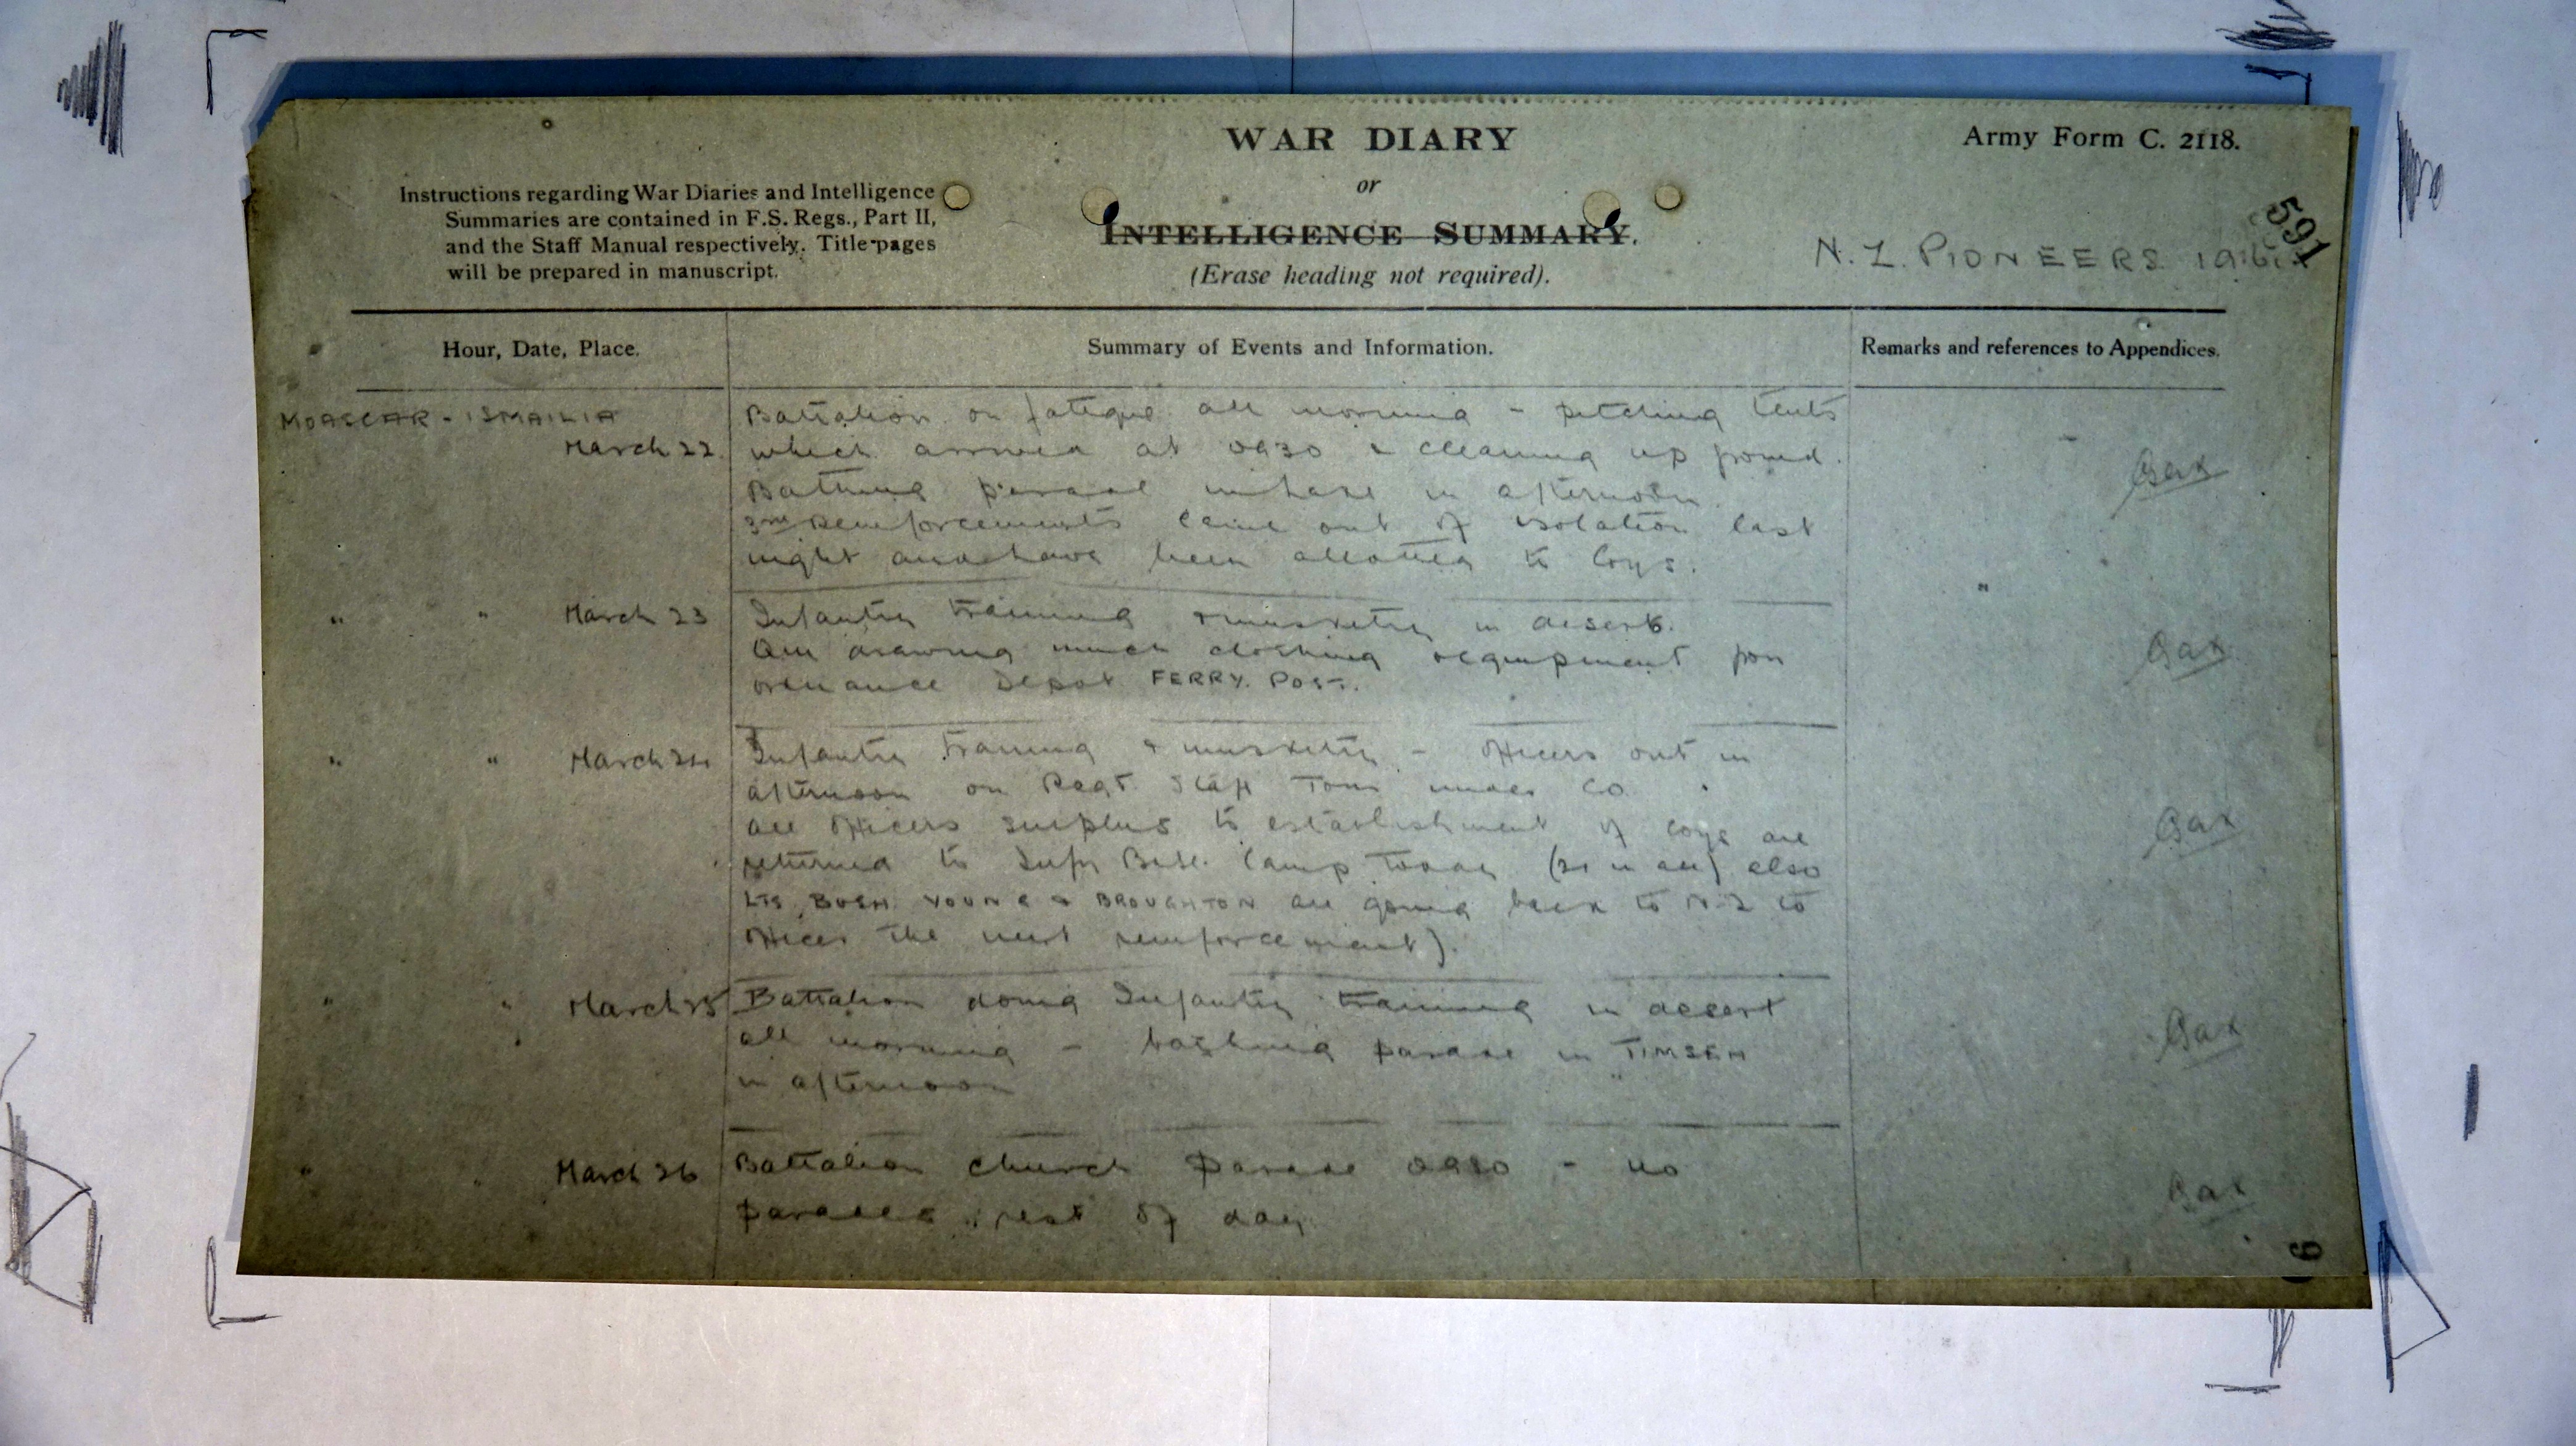 WAR DIARY
or
INTELLIGENCE SUMMARY.
(Erase heading not required).
Army Form C. 2118.
Instructions regarding War Diaries and Intelligence
Summaries are contained in F.S. Regs., Part II,
and the Staff Manual respectively. Title-pages
will be prepared in manuscript.
591
N.Z. PIONEERS 1916
Hour, Date, Place.
Summary of Events and Information.
Remarks and references to Appendices.
MOASCAR - ISMAILIA
March 22
Battalion on fatigue all morning - pitching tents
which arrived at 0930 & cleaning up ground.
Bathing parade in lake in afternoon
3rd Reinforcements came out of isolation last
night and have been allotted to Coys.
" " March 23
Infantry training & musketry in desert.
Am drawing much clothing & equipment from
ordnance Depot FERRY. POST.
" " March 24
Infantry training & musketry - Officers out in
afternoon on Regt. Staff Tour under CO
all officers surplus to establishment of coys are
returned to Infy Base Camp today (21 in all) also
Lts BUSH YOUNG & BROUGHTON are going back to N.Z to
officer the next reinforcement).
" " March 25
Battalion doing Infantry training in desert
all morning - bathing parade in TIMSEH
in afternoon
" " March 26
Battalion church parade 0930 - no
parades rest of day
9